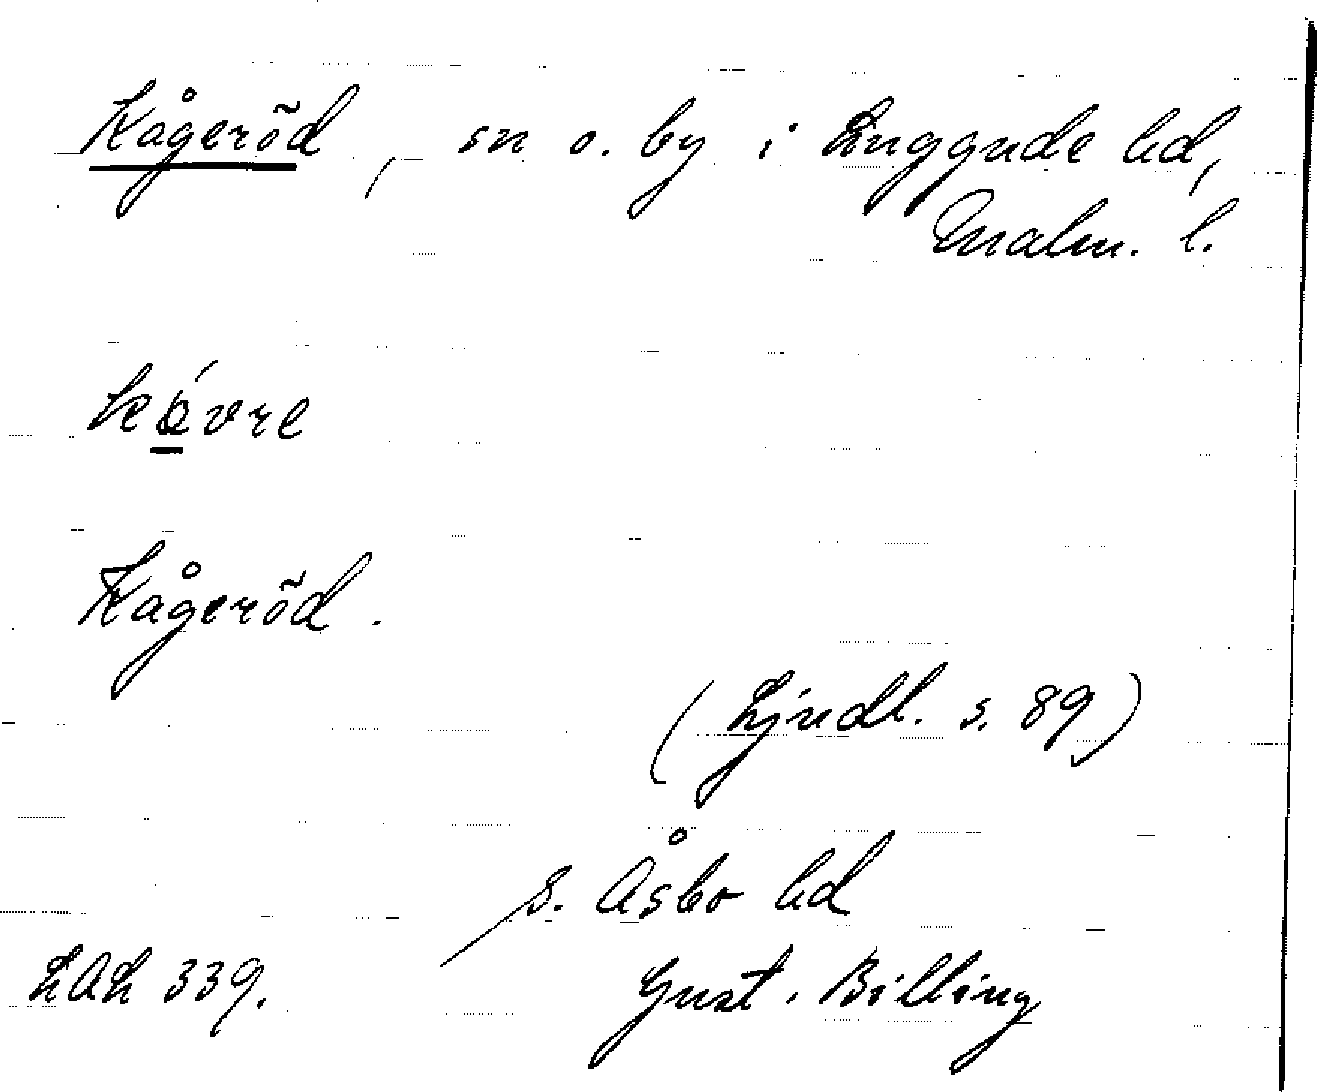 Kågeröd, sn o. by i Luggude hd,
Malm. l.
kåvre
Kågeröd.
(Ljndl. s. 89)
S. Åsbo hd
LAL 339. Gust. Billing